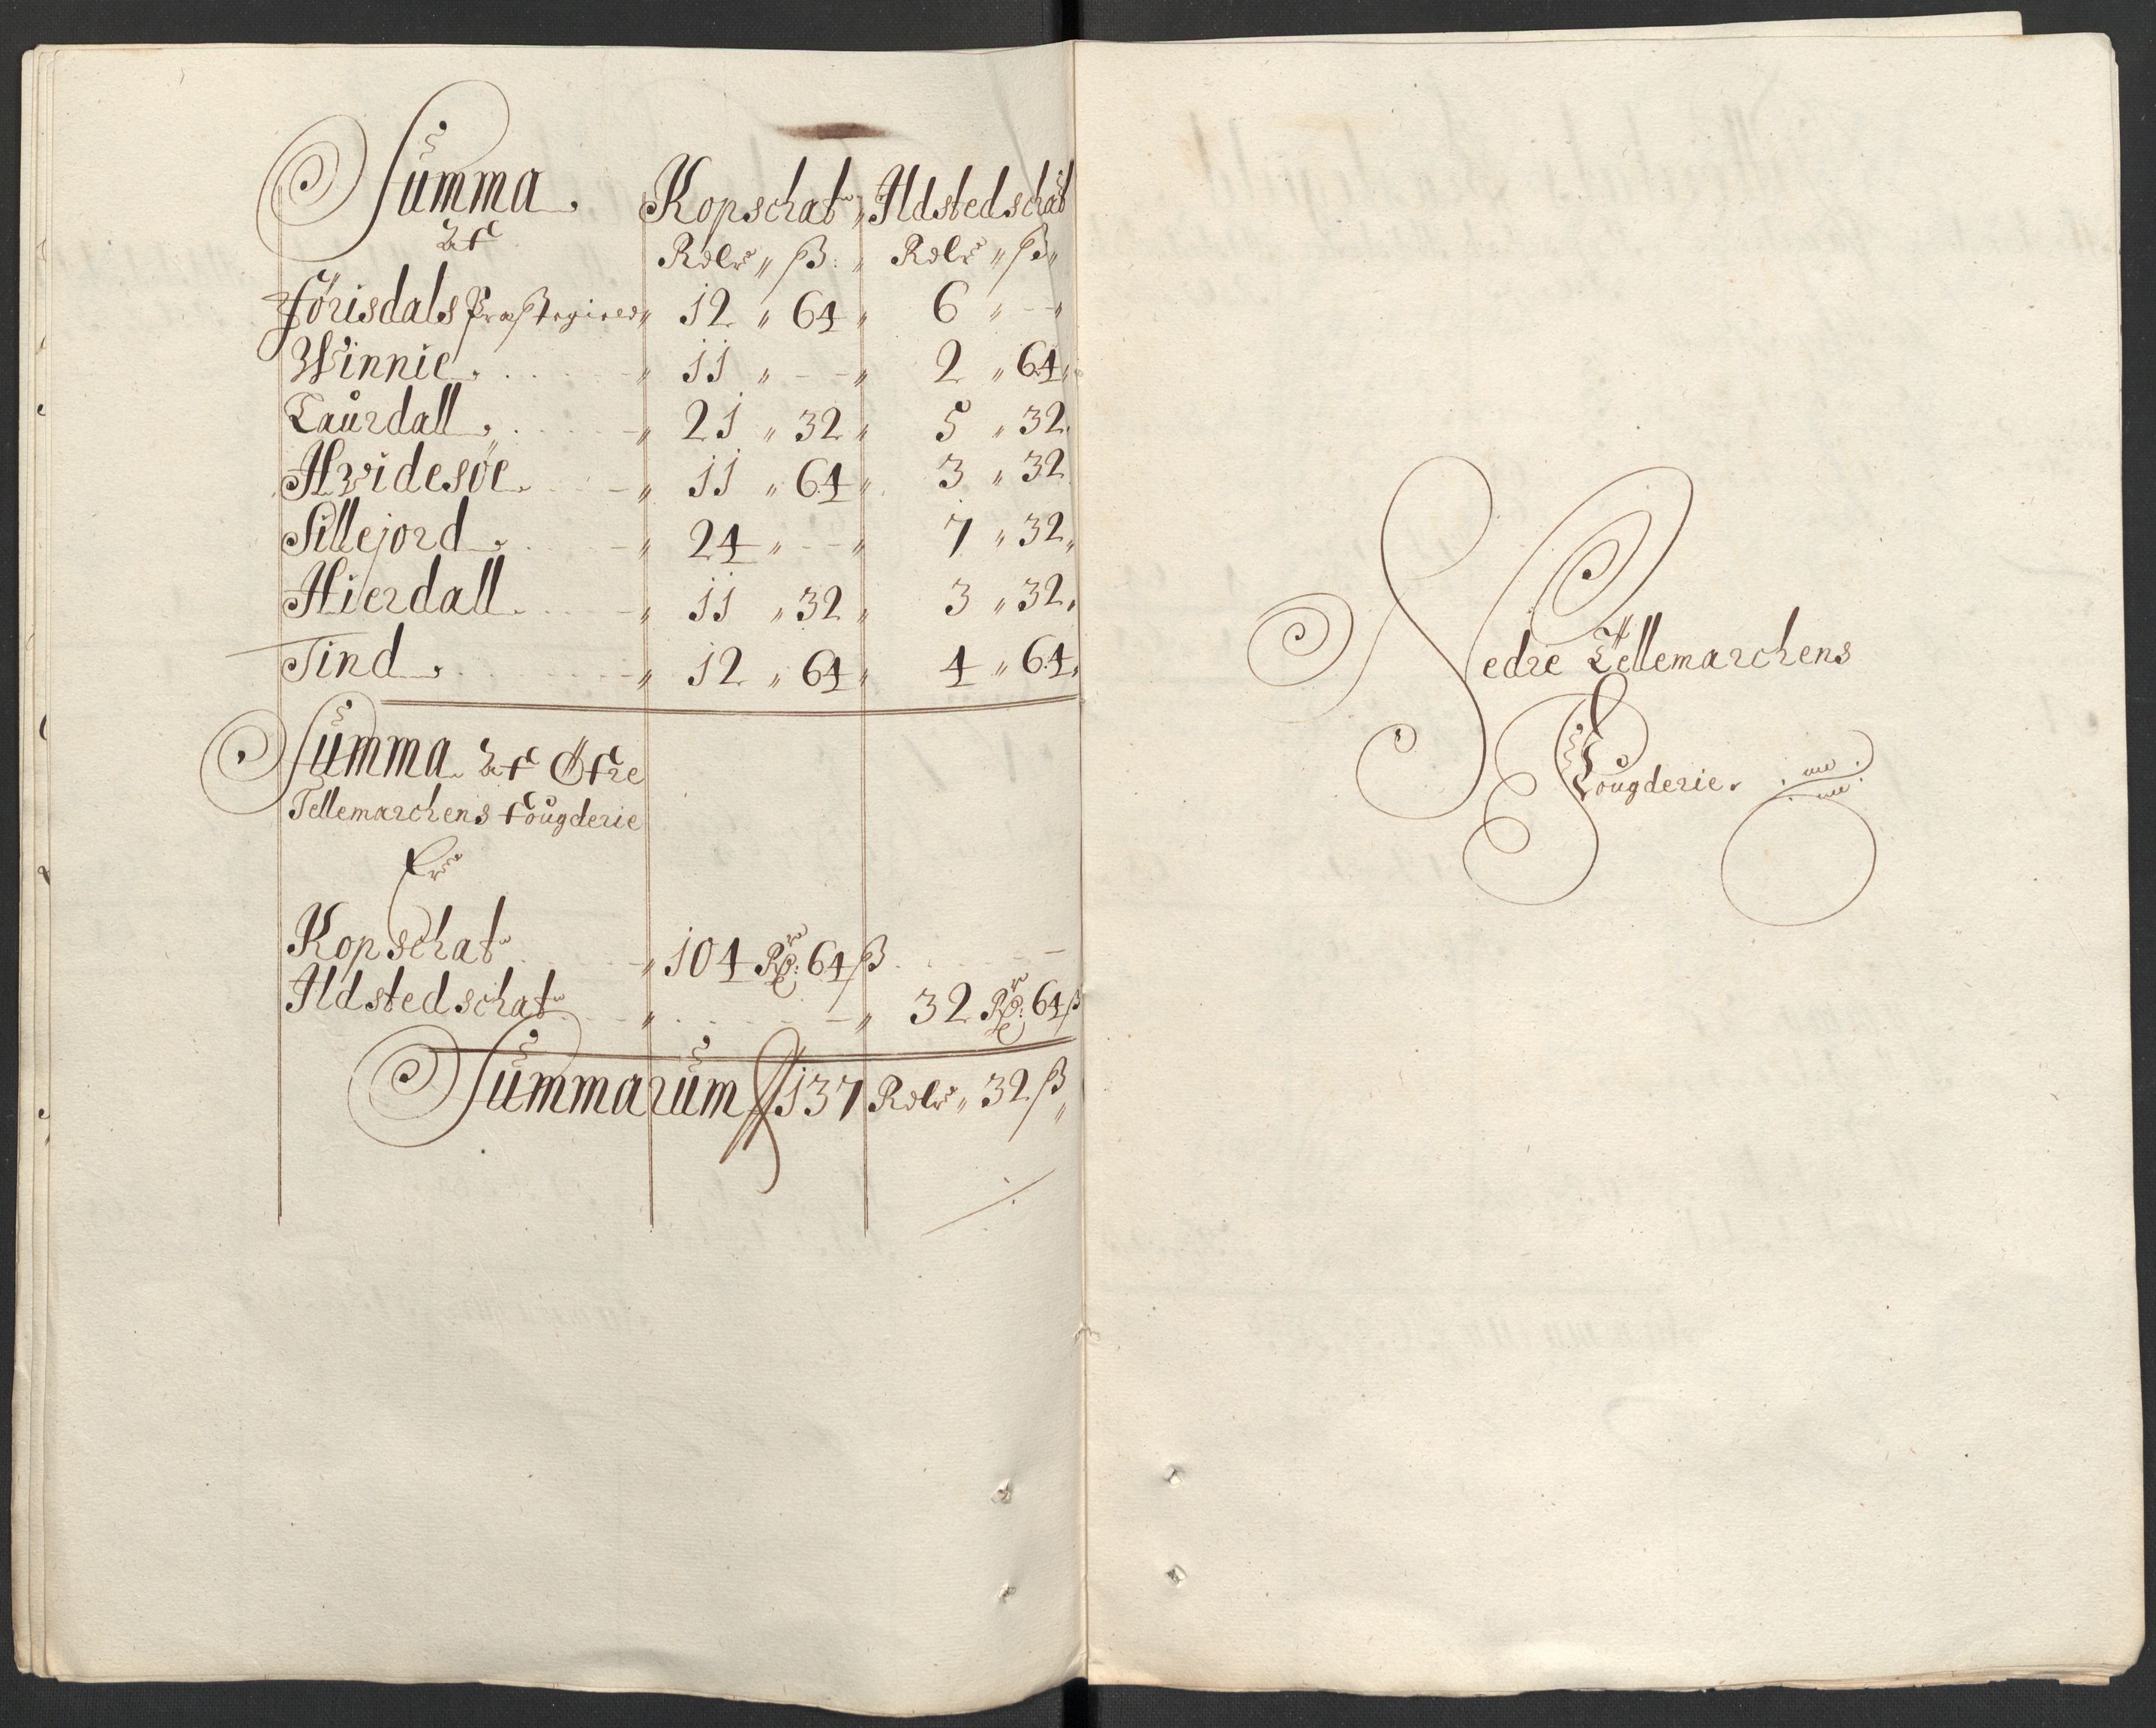 Summa. Kopschat, Ildstedschat
Af Rdlr „ ß: „ Rdlr „ ß „
Jörisdals Præstegield „ 12 „ 64 „ 6 „ - „
Winnie. „ 11 „ - - „ 2 „ 64 „
Laurdall. „ 21 „ 32 „ 5 „ 32.
Hvidesøe. „ 11 „ 64 „ 3 „ 32
Sillejord. „ 24 „ - - „ 7 „ 32 „
Hierdall. „ 11 „ 32 „ 3 „ 32.
Tind. „ 12 „ 64 „ 4 „ 64.
Summa Af Øfre
Tellemarchens fougderie
Er
Kopschat „ 104 Rdr: 64 ß
Ildstedschat „ - „ 32 Rdr: 64 ß
Summarum 137 Rdlr „ 32 ß „
Nedre Tellemarchens
Fougderie.